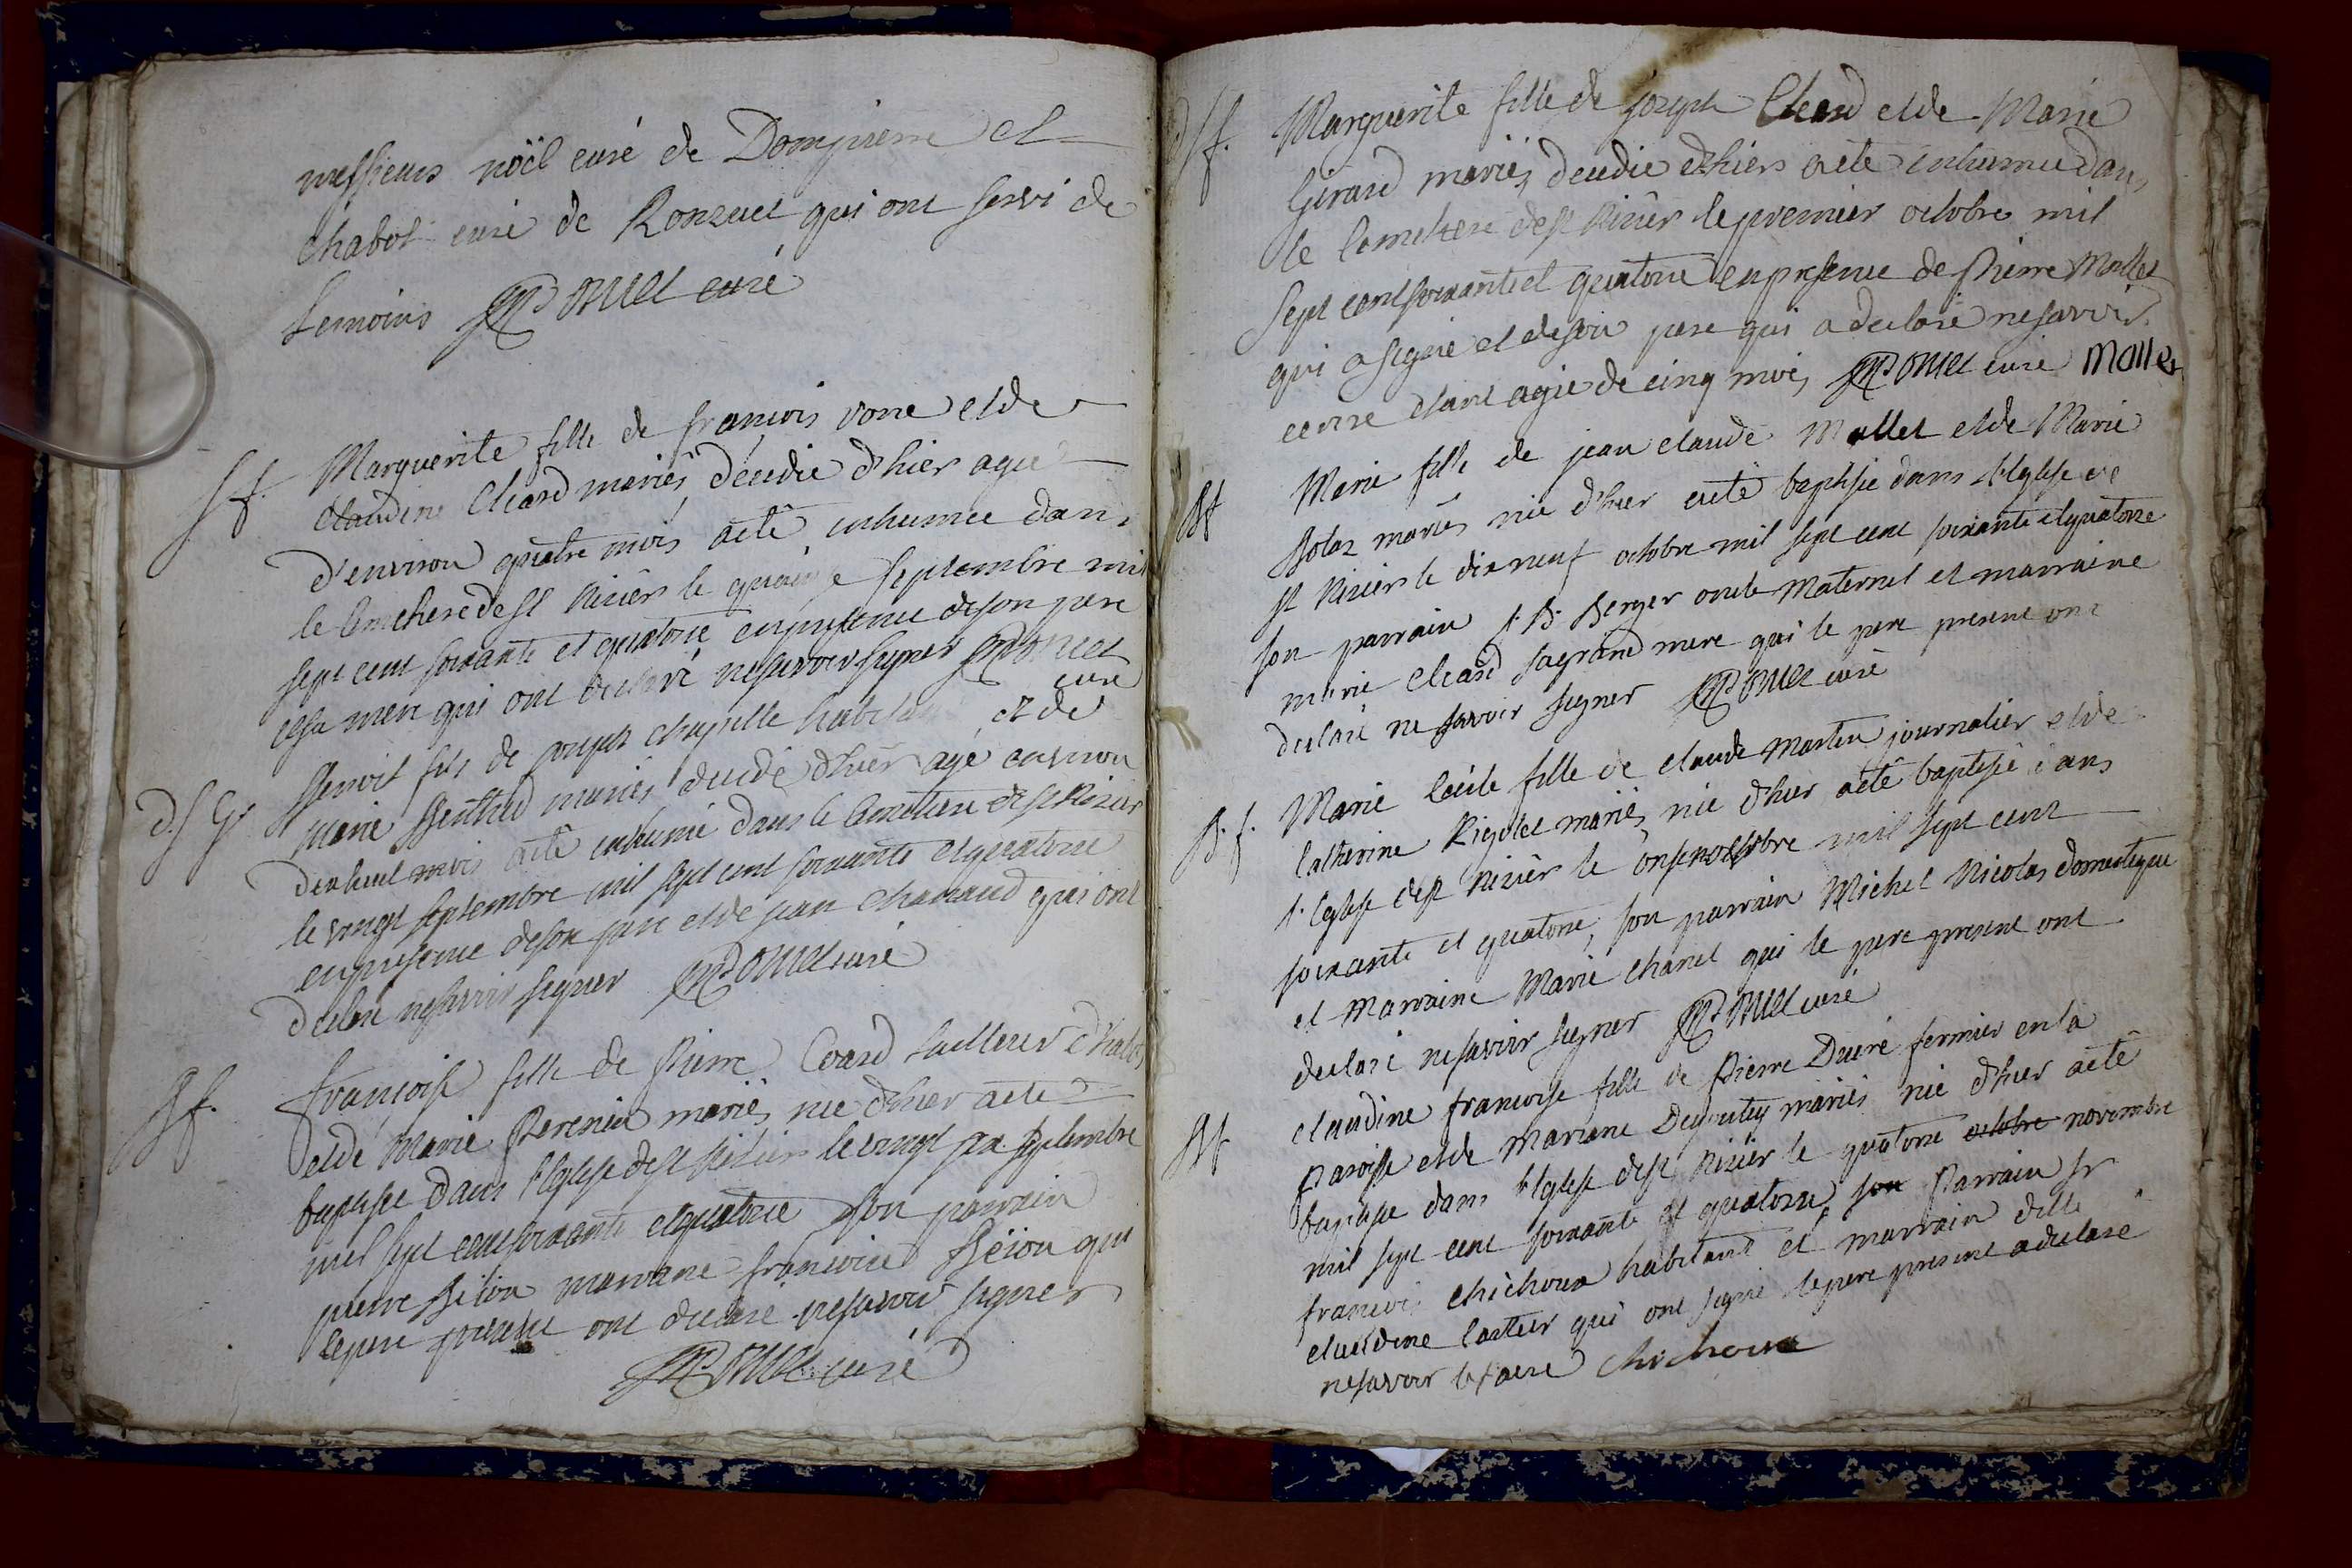 messieurs nöel curé de Dompierre et
chabot curé de Ronzuel qui ont servi de
temoins curé
Sf. Marguerite fille de francois vorre et de
claudine Cleard mariés décedée d'hier agée
d'environ quatre mois a eté inhumée dans
le Cimetiere de St Nizier le septembre mil
sept cent soixante et quatorze en presence de son pere
et sa mere qui ont declaré ne savoir signer
curé
D.S G. Benoit fils de joseph chapelle habitant et de
marie mariés decedé d'hier agé environ
dix huit mois a eté inhumé dans le Cimetiere de St Nizier
le vingt septembre mil sept cent soixante et quatorze
en presence de son pere et de jean chanaud qui ont
declaré ne savoir signer curé
Bf. francoise fille de Pierre Coard tailleur d'habits
et de Marie mariés née d'hier a eté
baptisée dans l'Eglise de St Nizier le vingt six septembre
mil sept cent soixante et quatorze son parrain
pierre marraine francoise qui
le pere present ont declaré ne savoir signer
curé
d Sf. Marguerite fille de joseph Cleard et de Marie
Girard mariés decedée d'hiers a eté inhumée dans
le Cimetiere de St Nizier le premier octobre mil
sept cent soixante et quatorze en presence de Pierre Mallet
qui a signé et de son pere qui a declaré ne savoir
ecrire etant agée de cinq mois curé Mallet
Bf Marie fille de jean claude Mallet et de Marie
mariés née d'hier a eté baptisée dans l'Eglise de
St Nizier le dix neuf octobre mil sept cent soixante et quatorze
son parrain J. B. Berger oncle Maternel et marraine
marie Cleard sa grand mere qui le pere present ont
declaré ne savoir signer curé
B. f. Marie Cécile fille de claude Martin journalier et de
Catherine Rigolet mariés née d'hier a eté baptisée dans
l'Eglise de St Nizier le onze novembre mil sept cent
soixante et quatorze son parrain Michel Nicolas domestique
et Marraine Marie chanel qui le pere present ont
declaré ne savoir signer curé
Bf claudine francoise fille de Pierre Ducré fermier en la
Paroisse et de Mariane mariés née d'hier a eté
baptisée dans l'Eglise de St Nizier le quatorze octobre novembre
mil sept cent soixante et quatorze son Parrain Sr
francois chichoux habitant et marrain dlle
claudine Cartier qui ont signé le pere present a declaré
ne savoir le faire chichoux